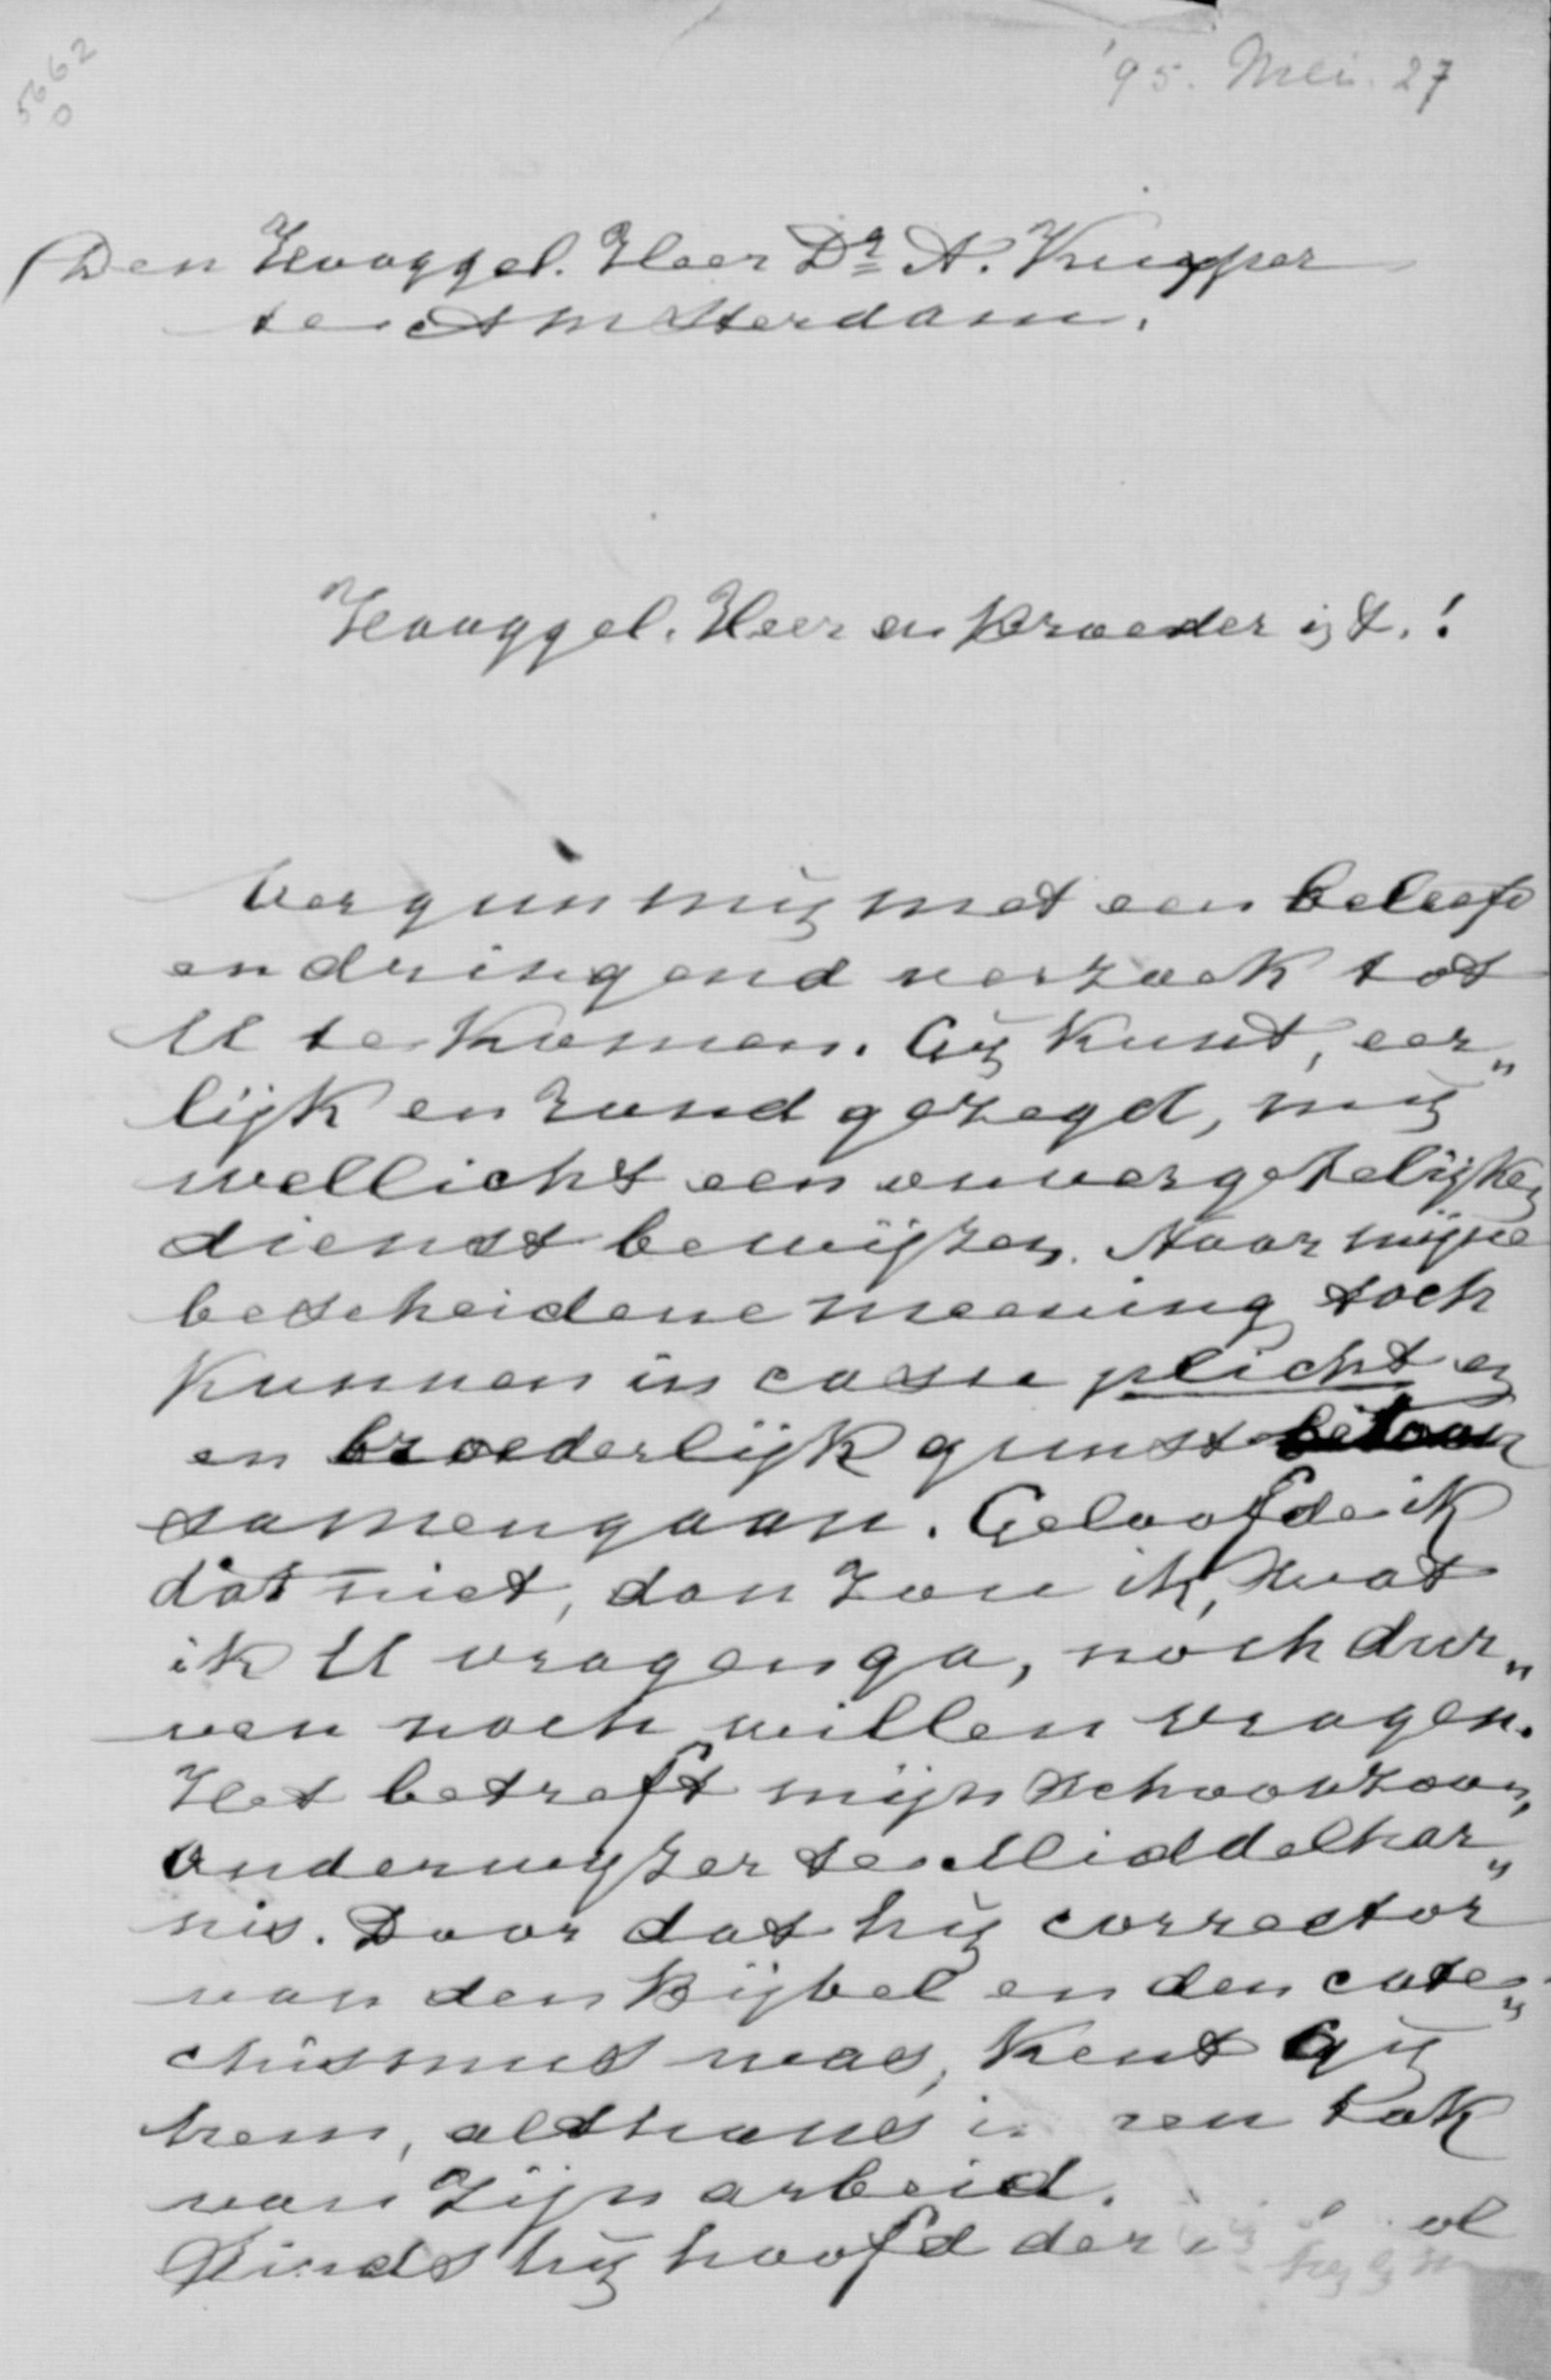 5662
0
'95. Mei. 27
Den Hooggel. Heer Dr A. Kuyper
te Amsterdam.
Hooggel. Heer en Broeder i/d t.!
Vergun mij met een beleefd
en dringend verzoek tot
U te komen. Gij kunt, eer„
lijk en rond gezegd, mij
wellicht een onvergetelijken
dienst bewijzen. Naar mijne
bescheidene meening toch
kunnen in casu plicht en
en broederlijk gunstbetoon
samengaan. Geloofde ik
dàt niet, dan zou ik, wat
ik U vragen ga, nòch dur„
ven noch willen vragen.
Het betreft mijn schoonzoon,
onderwijzer te Middelhar„
nis. Door dat hij corrector
van den Bijbel en den cate„
chismus was, kent Gij
hem, althans in een tak
van zijn arbeid.
Sinds hij hoofd der